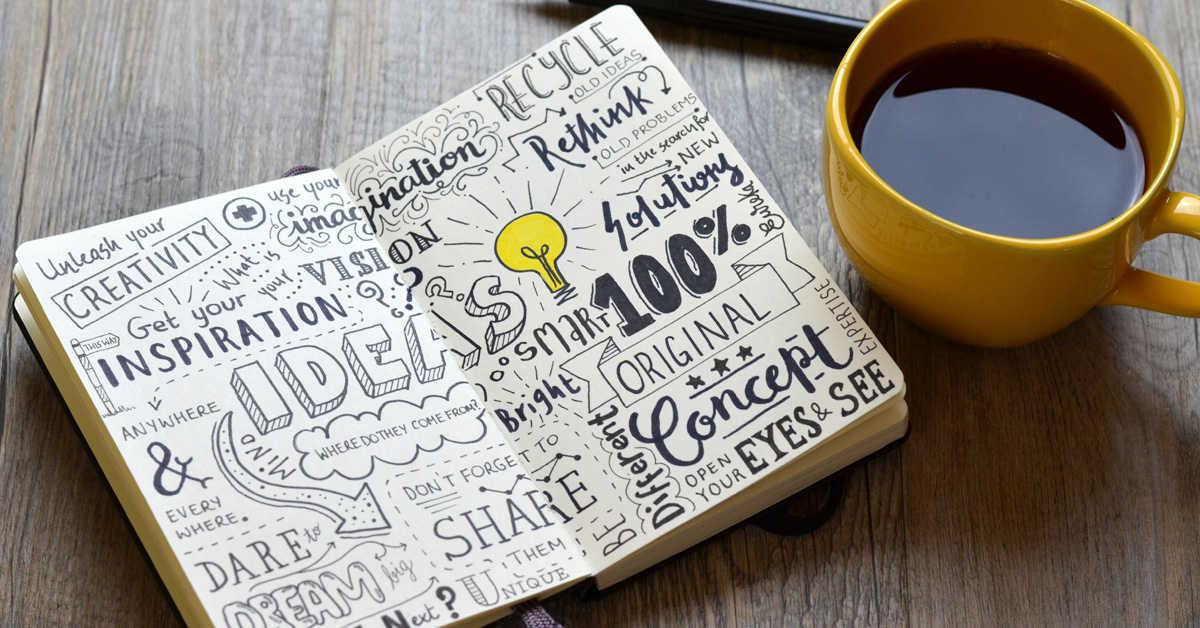 Unleash your
CREATIVITY
+ use your
imagination
What is
your VISION
??
Get your
INSPIRATION
THIS WAY
ANYWHERE
&
EVERY
WHERE.
IDEAS
MIND
WHERE DO THEY COME FROM?
DON'T FORGET TO
SHARE
THEM
DARE to
DREAM big
Next?
UNIQUE
RECYCLE
OLD IDEAS
Rethink
OLD PROBLEMS
in the search for
NEW
Solutions
Eureka
100%
SMART
Bright
ORIGINAL
Concept
EXPERTISE
BE
Different
OPEN
YOUR
EYES & SEE